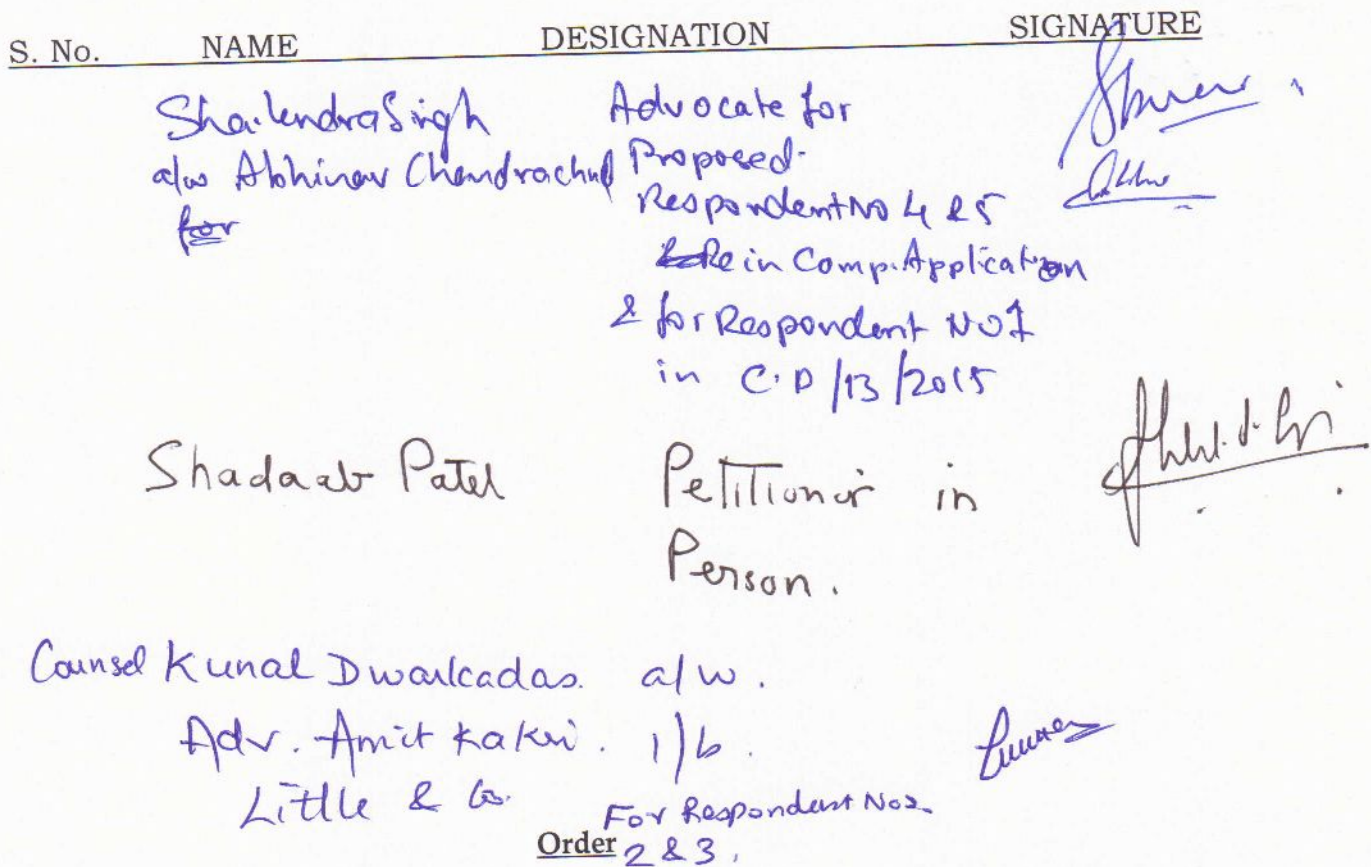 S. No. NAME DESIGNATION SIGNATURE
Shailendra Singh Advocate for
a/w Abhinav Chandrachud Proposed
for Respondent No 4 & 5
& Re in Comp. Application
& for Respondent NO 1
in C.P /13/2015
Shadaab Patel Petitioner in
Person.
Counsel Kunal Dwarkadas. a/w.
Adv. Amit i/b.
Little & Co. For Respondent Nos.
Order 2 & 3.